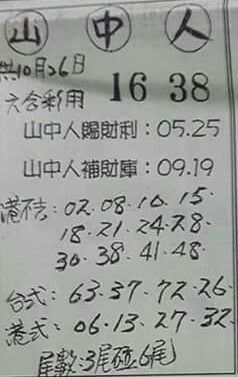 山中人
共10月26日
六合彩用 16 38
山中人賜財利：05.25
山中人補財庫：09.19
港不吉：02.08.10.15.
18.21.24.28.
30.38.41.48.
台式：63.37.72.26.
港式：06.13.27.32.
尾數：3尾碰6尾